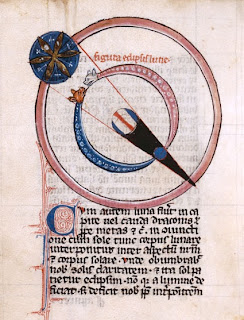 figura eclipsis lune
Cum autem luna fuerit in ca
pite vel cauda draconis
pe metas et in
one cum sole tunc corpus lunare
interponitur inter aspectum nostrum
et corpus solare. unde obumbrat
nobis solis claritatem. et ita sol pa
tietur eclipsim. non quia lumine de
ficiat. sed deficit nobis